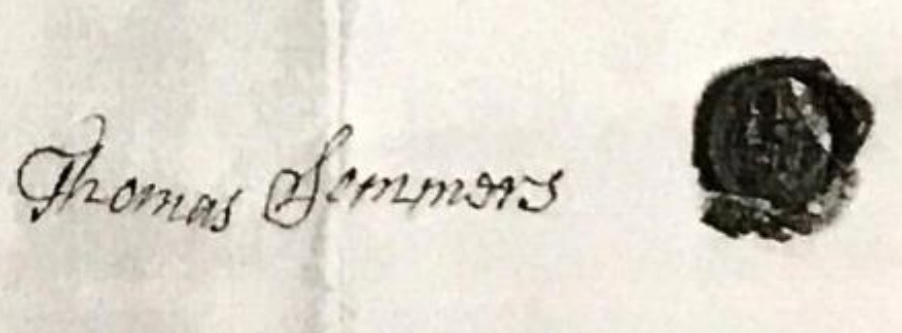 Thomas Sommers